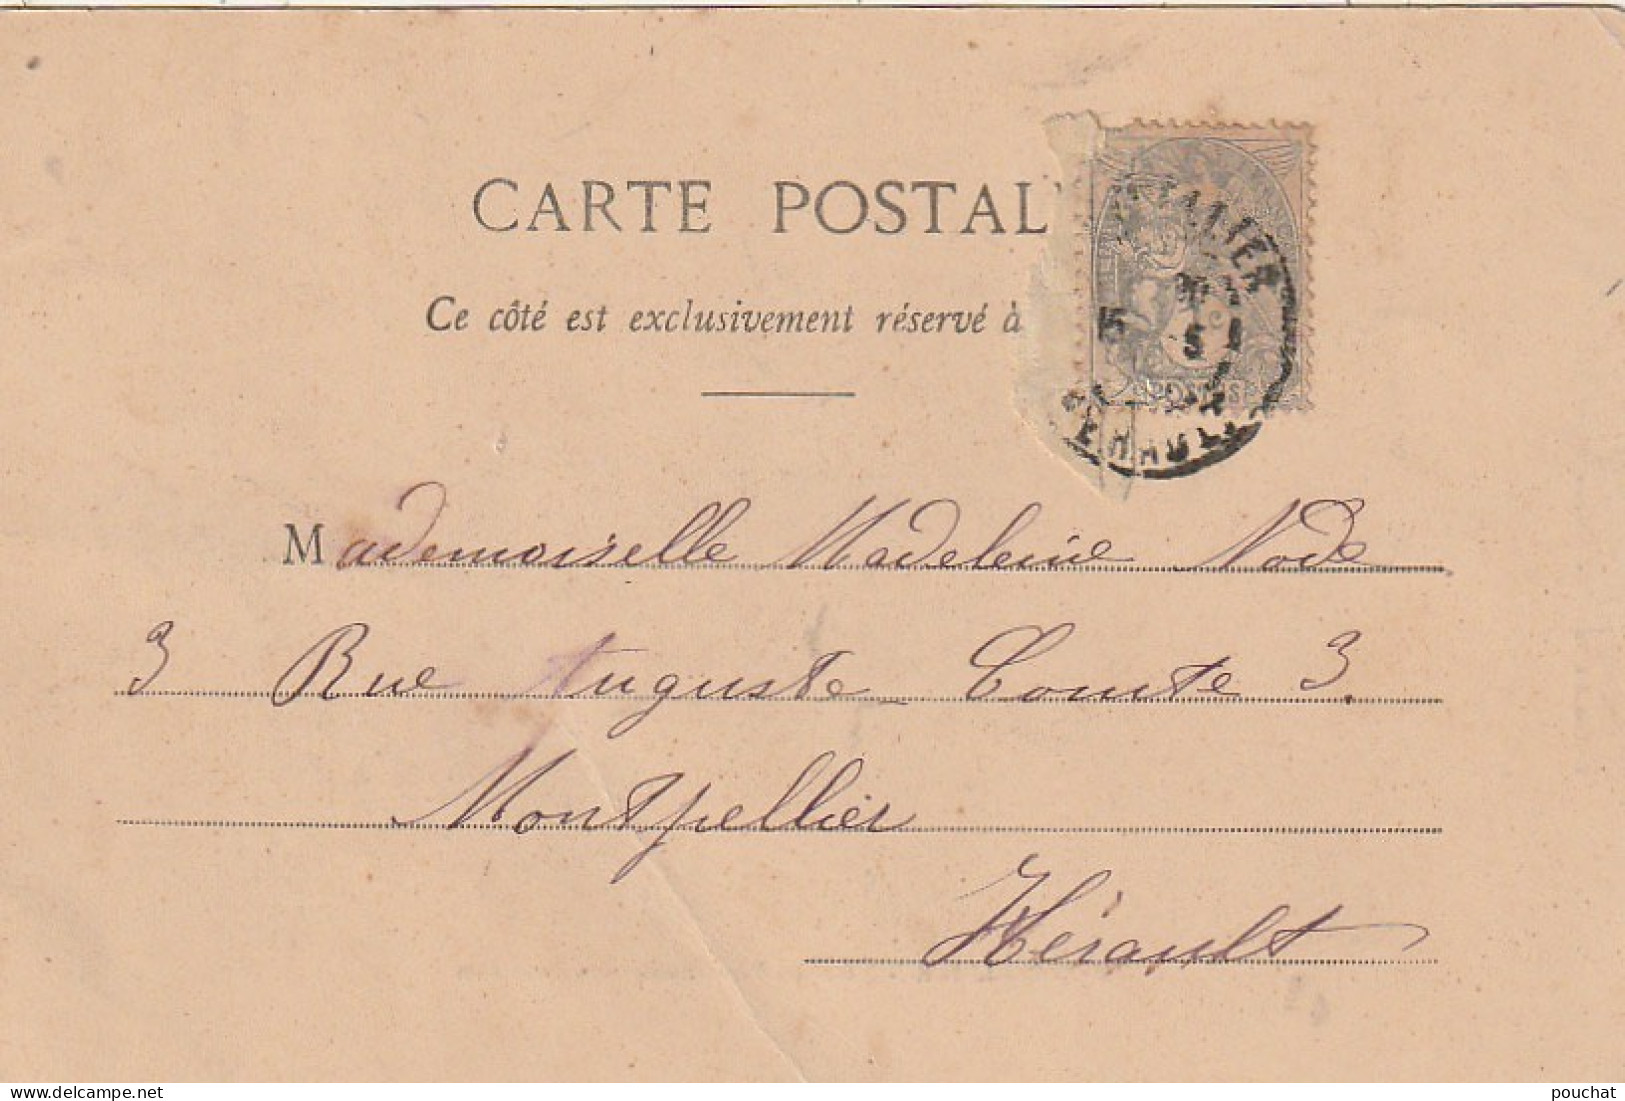 CARTE POSTAL
Ce côté est exclusivement réservé à
POSTES
HERAULT
Mademoiselle Madeleine Node
3 Rue Auguste Comte 3.
Montpellier
Hérault
pouchat